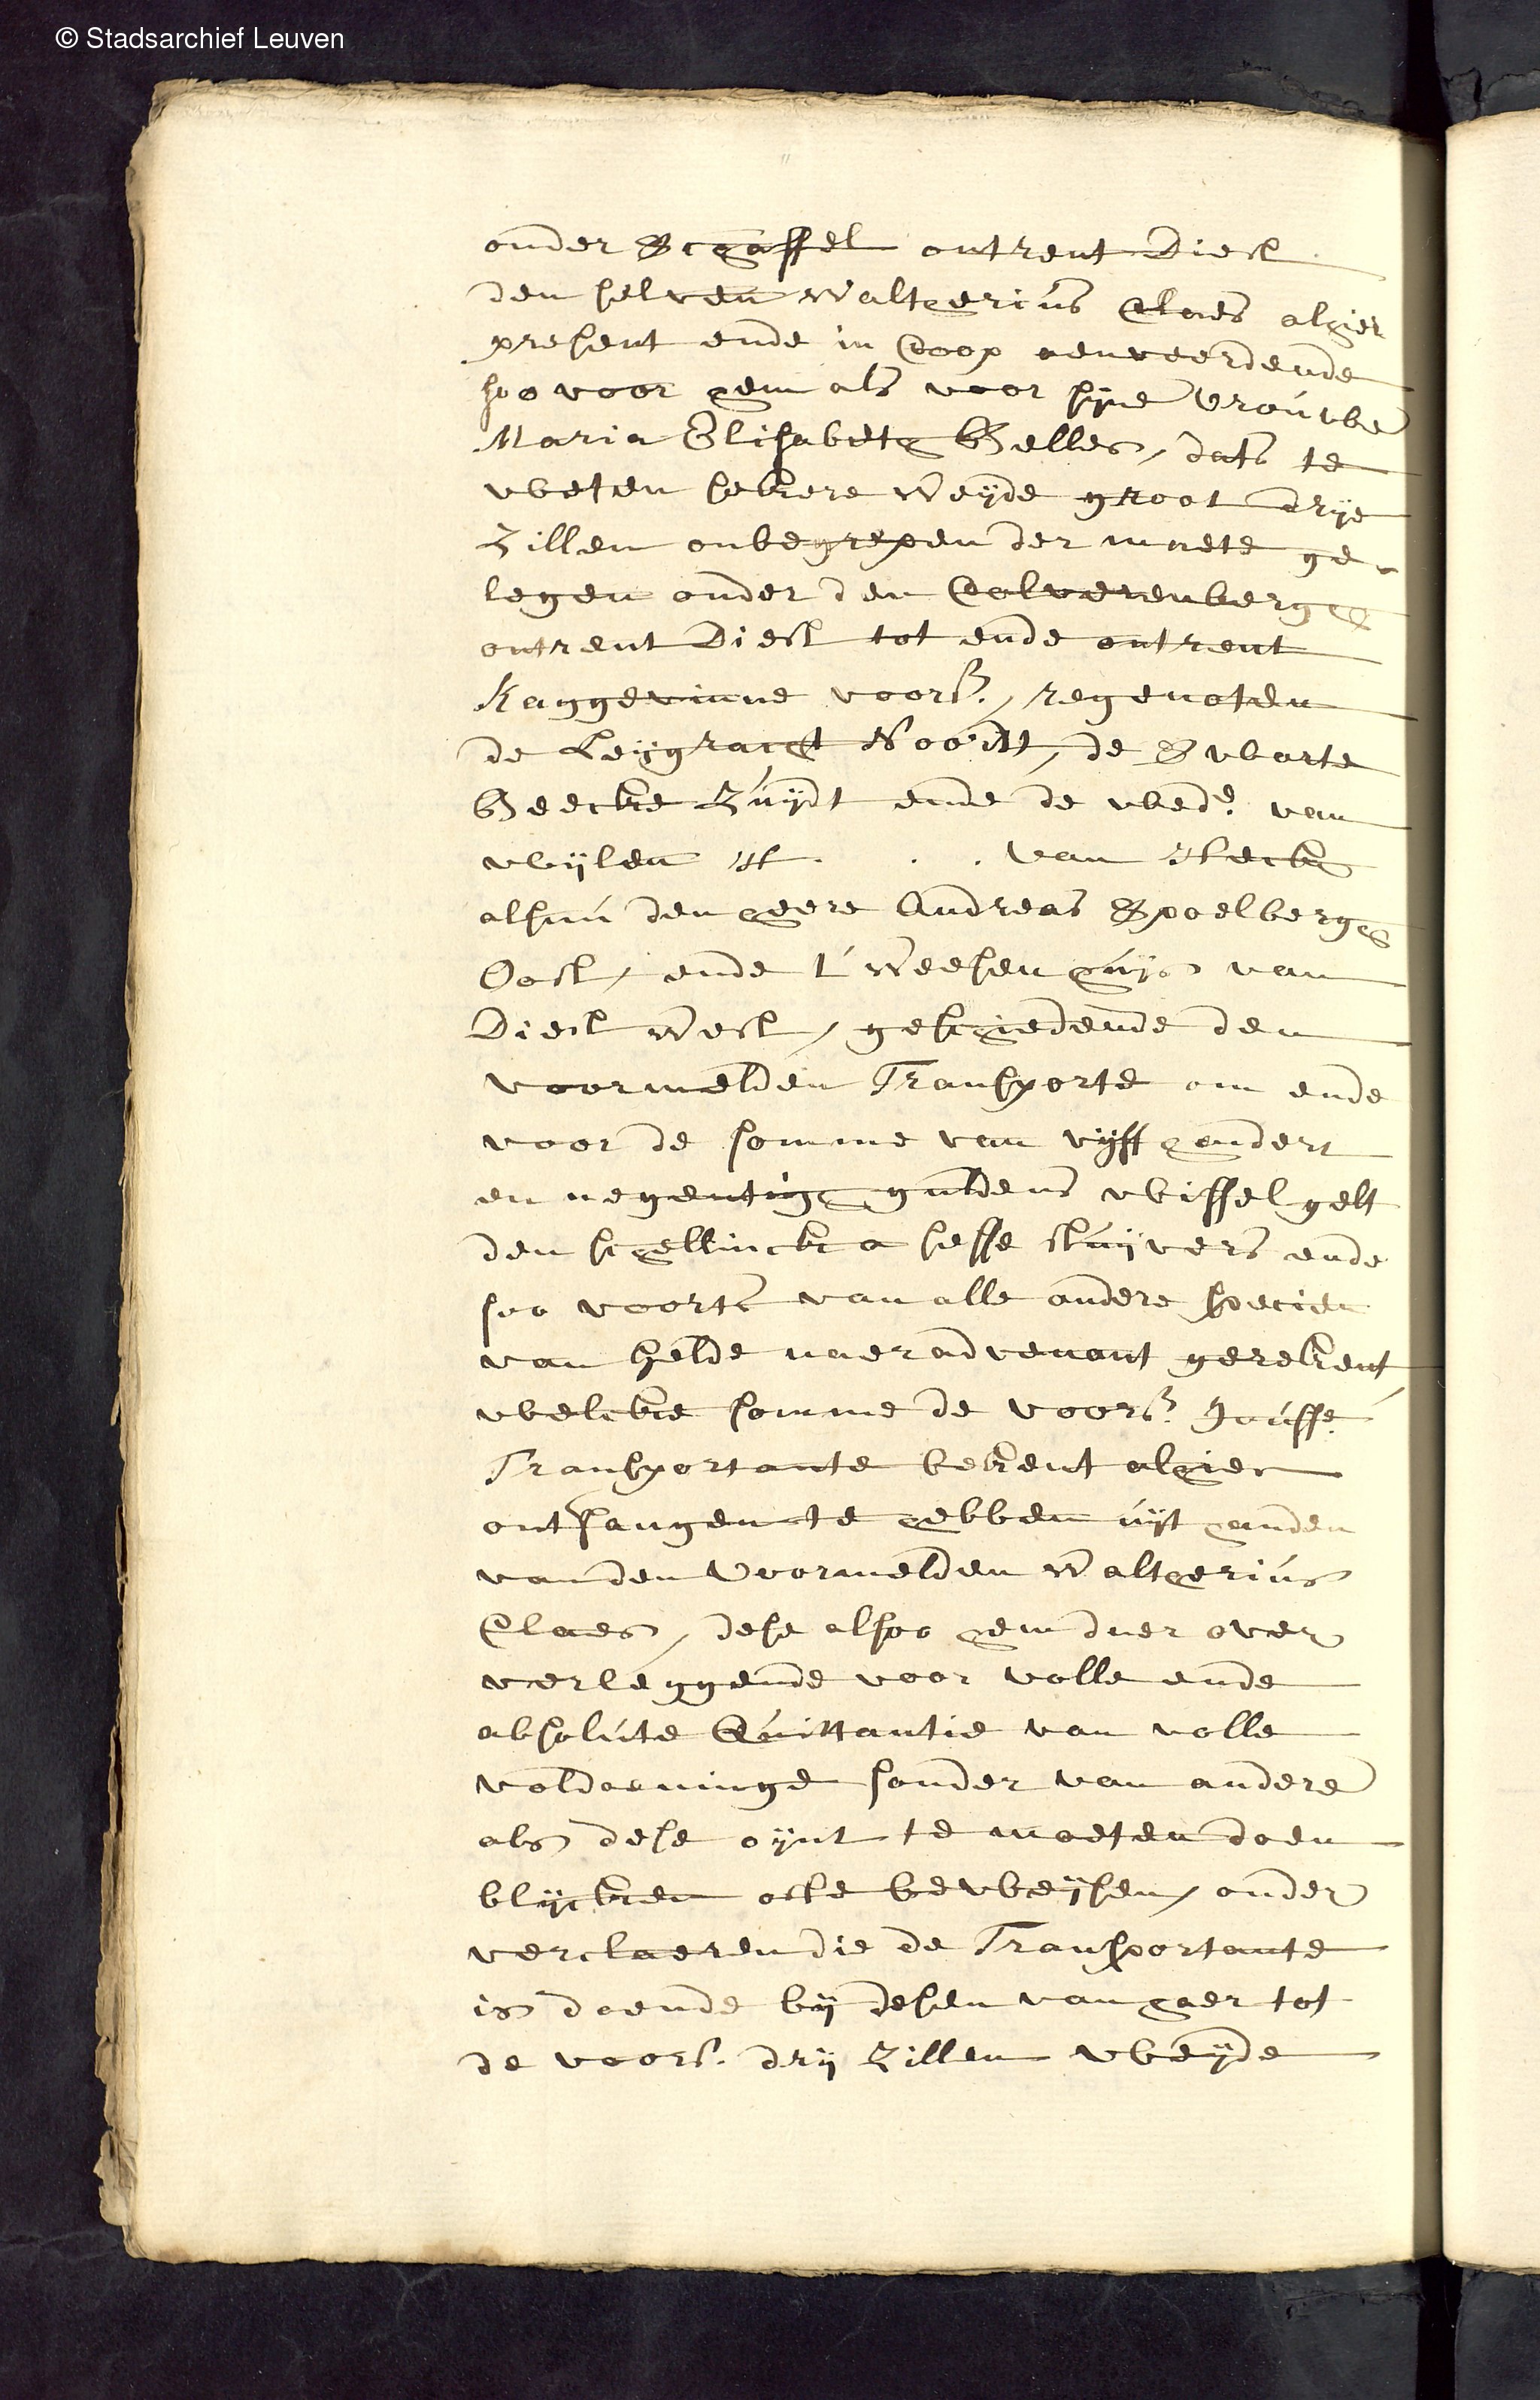 © Stadsarchief Leuven
onder Schaffel ontrent Diest
den selven Waltherius Claes alhier
present ende in Coop aenveerdende
soo voor hem als voor sijne vrouwe
Maria Elisabeth Gelles, dats te
weten sekere Weyde groot drije
Zillen onbegrepen der maete ge-
legen onder den Calverenbergh
ontrent Diest tot ende ontrent
Kaggevinne voors. regenoten
de Leijgracht Noordt, de Swarte
Beecke Zuijdt ende de wed.e van
wijlen H . . van Heck
alsnu den heere Andreas Spoelbergh
Oost, ende t' Weesenhuijs van
Diest West, geschiedende den
voormelden Transporte om ende
voor de somme van vijff hondert
en negentigh guldens wissel gelt
den schellinck a sesse stuijvers ende
soo voorts van alle andere specien
van Gelde naer advenant gerekent
welcke somme de voors. Jouffe.
Transportante bekent alhier
ontfangen te hebben uijt handen
van den Voormelden Waltherius
Claes, dese alsoo hem daer over
verleggende voor volle ende
absolute Quittantie van volle
voldoeninge sonder van andere
als dese oijnt te moeten doen
blijcken ofte bewijsen, onder
verclaeren die de Transportante
is doende bij desen van haer tot
de voors. drij Zillen weijde